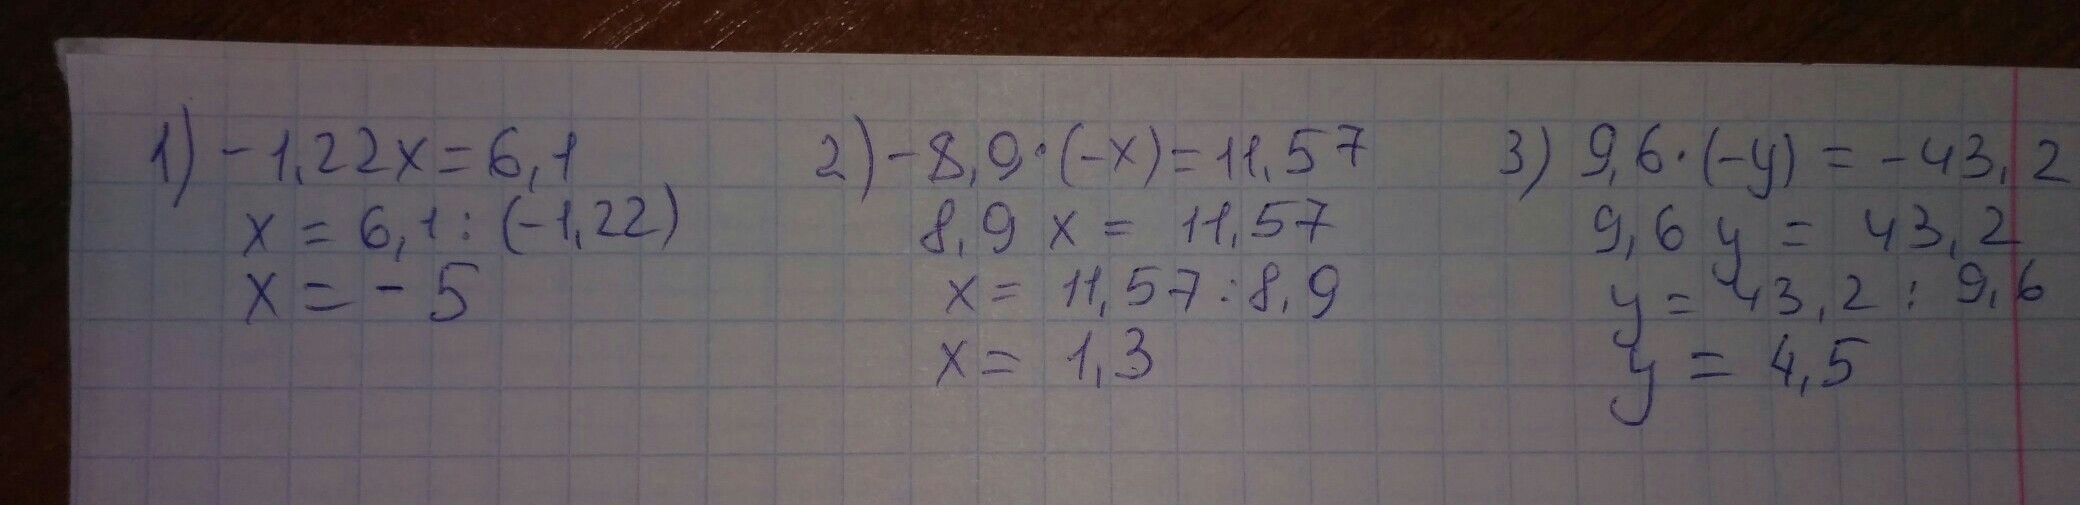 1) -1,22x=6,1
x = 6,1 : (-1,22)
x = - 5
2) -8,9·(-x)=11,57
8,9 x = 11,57
x = 11,57 : 8,9
x = 1,3
3) 9,6·(-y) = -43,2
9,6 y = 43,2
y = 43,2 : 9,6
y = 4,5